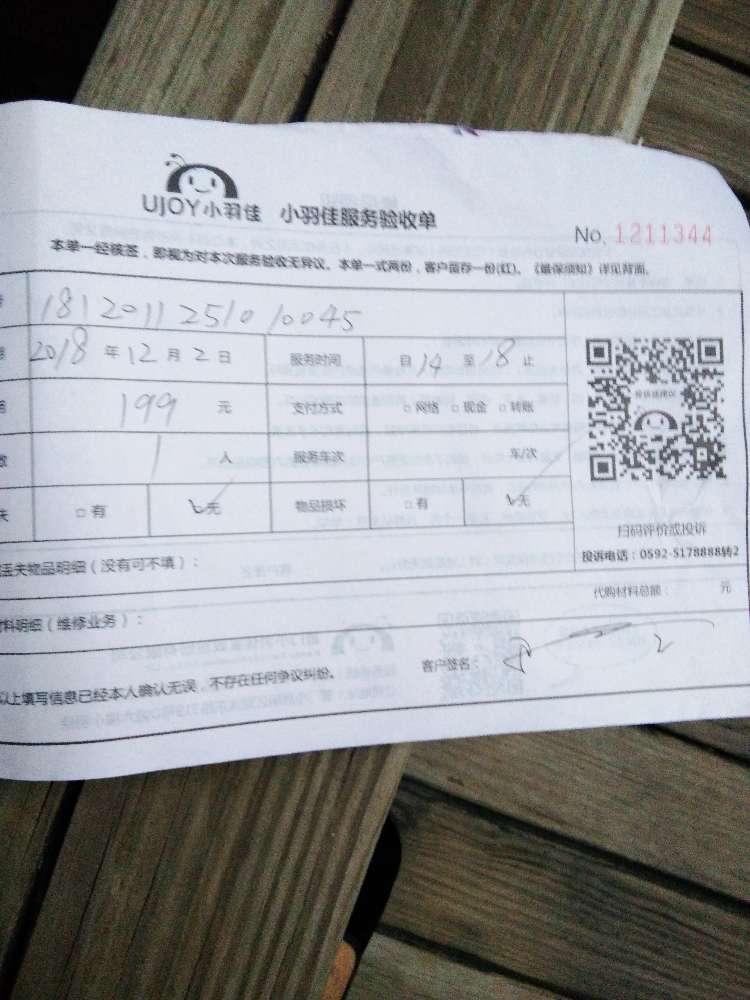 UJOY小羽佳 小羽佳服务验收单
No. 1211344
本单一经核签，即视为对本次服务验收无异议。本单一式两份，客户留存一份(红)。《维保须知》详见背面。
1812011251010045
2018 年 12 月 2 日 服务时间 自 14 至 18 止
199 元 支付方式 □ 网络 □ 现金 □ 转账
1 人 服务车次 车/次
□ 有 无 物品损坏 □ 有 无
扫码评价或投诉
投诉电话：0592-5178888转2
丢失物品明细（没有可不填）：
代购材料总额： 元
材料明细（维修业务）：
以上填写信息已经本人确认无误，不存在任何争议纠纷。 客户签名：